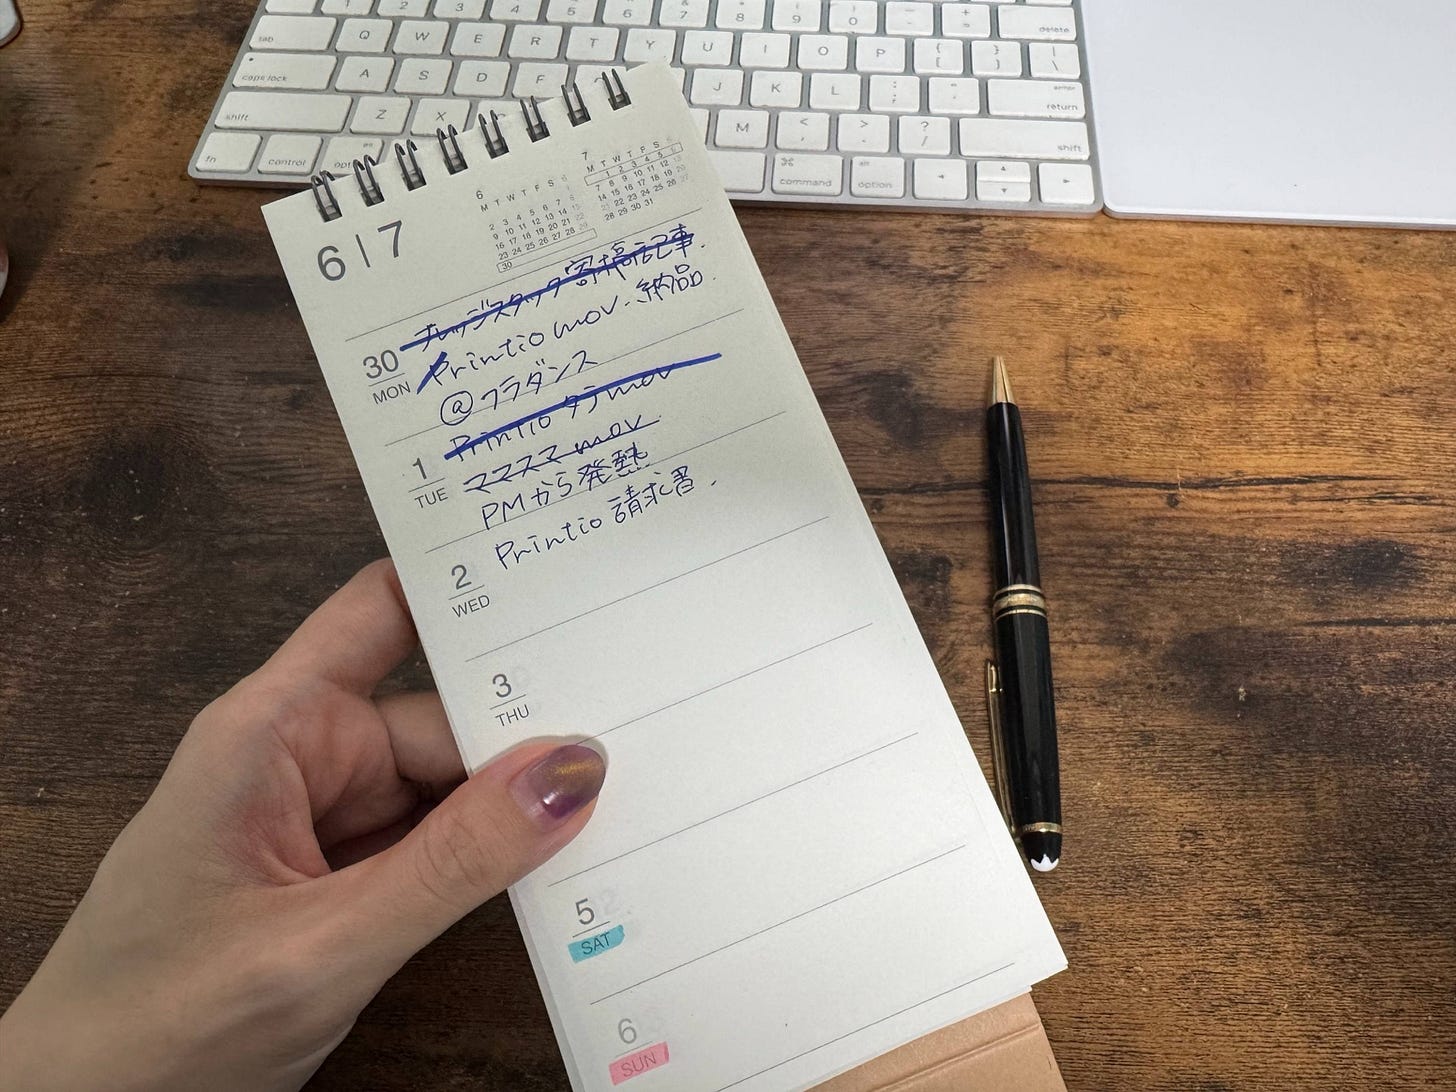 1 2 3 4 5 6 7 8 9 0
tab Q W E R T Y U I O P { [ } ] | \ delete
caps lock A S D F J K L : ; " ' enter return
shift Z X M < , > . ? / shift
fn control command alt option
6|7
6
M T W T F S S
1
2 3 4 5 6 7 8
9 10 11 12 13 14 15
16 17 18 19 20 21 22
23 24 25 26 27 28 29
30
7
M T W T F S S
1 2 3 4 5 6
7 8 9 10 11 12 13
14 15 16 17 18 19 20
21 22 23 24 25 26 27
28 29 30 31
30 MON
ナレッジスタック寄稿記事.
Printio mov. 納品.
@フラダンス
1 TUE
Printio タテmov
ママスマ mov
PMから発熱
2 WED
Printio 請求書.
3 THU
5 SAT
6 SUN